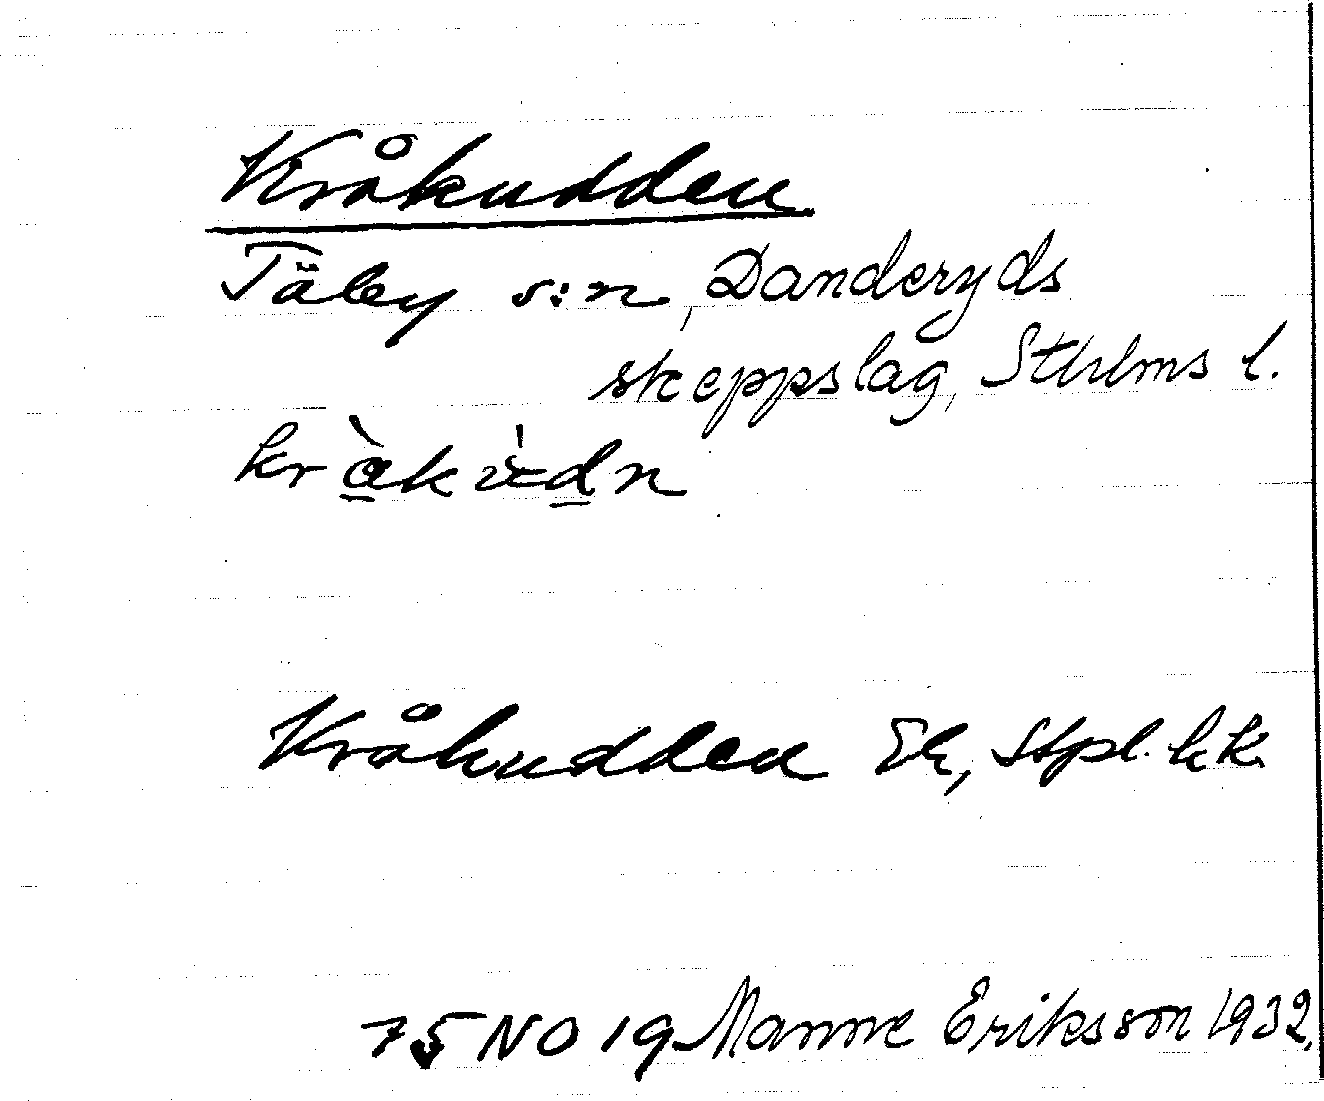 Kråkudden
Täby s:n, Danderyds
skeppslag, Sthlms l.
Kråkudden Ek, Stpl. bl.
75 NO 19 Manne Eriksson 1932.